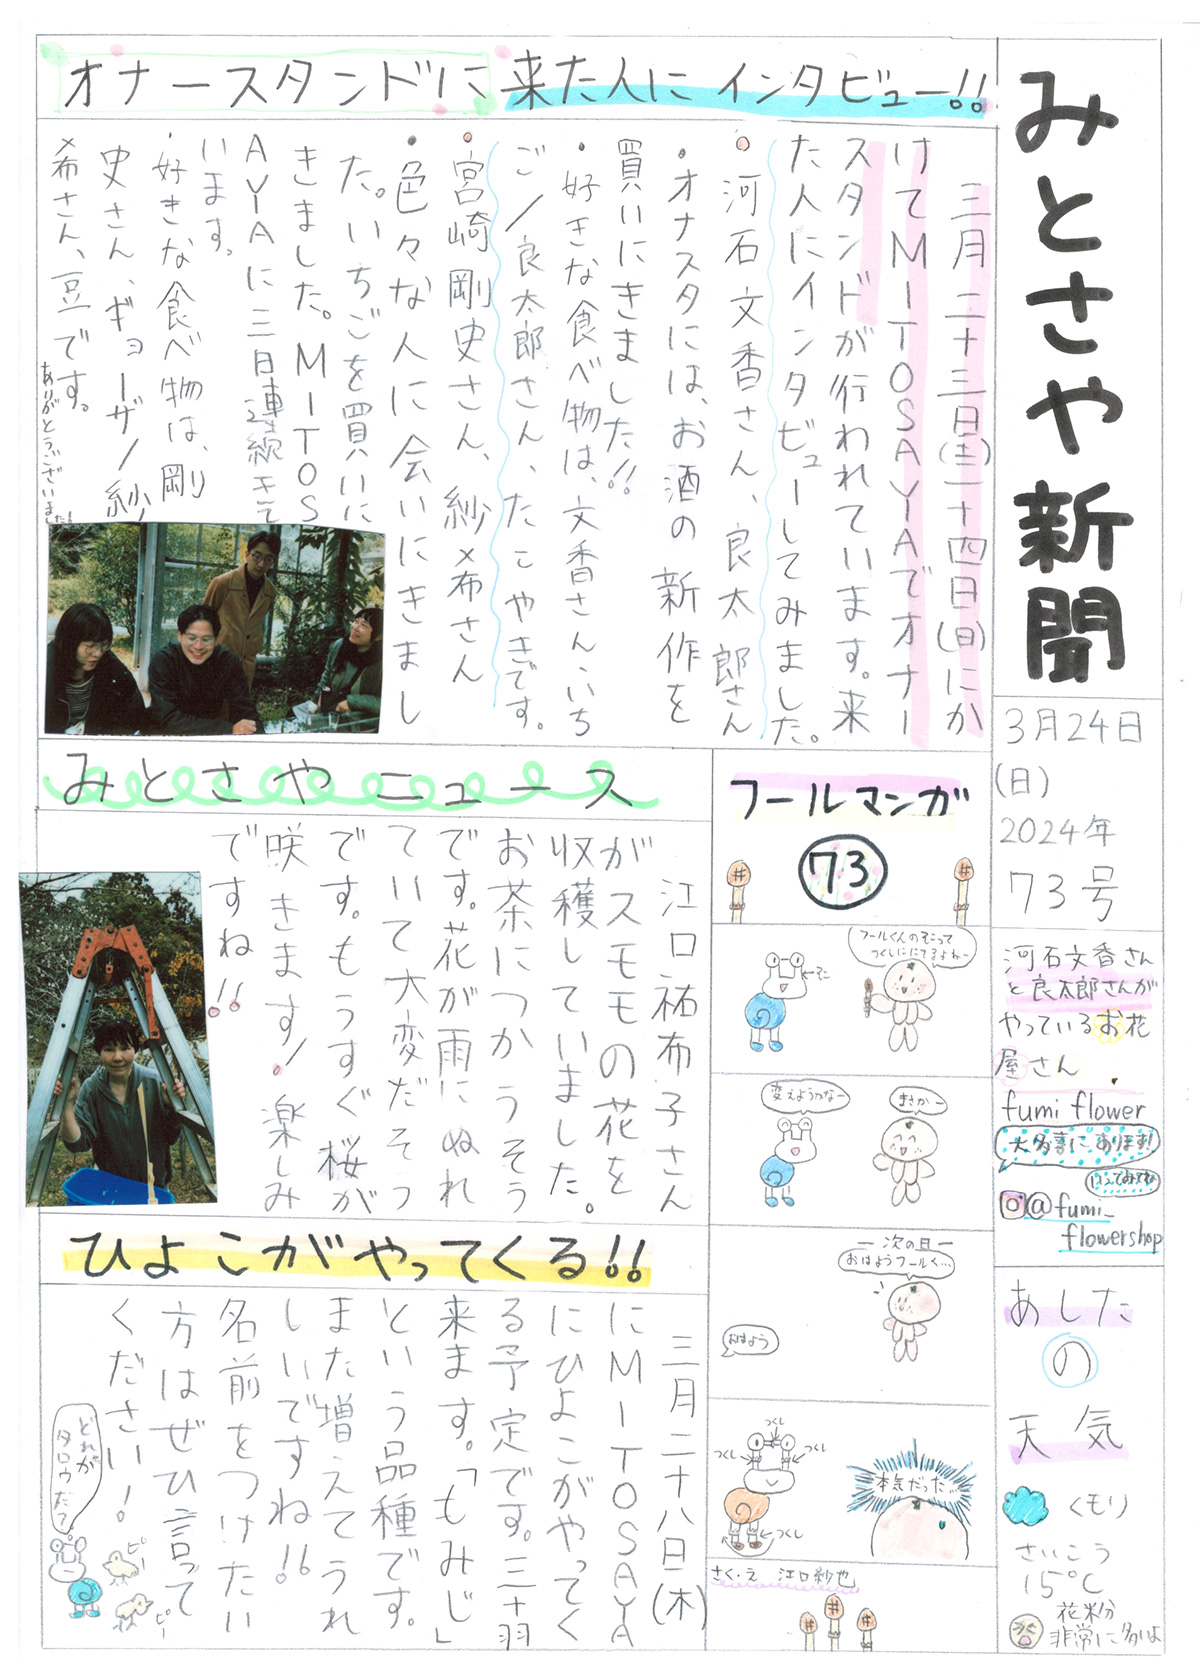 みとさや新聞
3月24日
(日)
2024年
73号
河石文香さん
と良太郎さんが
やっているお花
屋さん
fumi flower
大多喜にあります!
行ってみてね
@fumi_
flowershop
あした
の
天気
くもり
さいこう
15℃
花粉
非常に多いよ
オナースタンドに来た人にインタビュー!!
三月二十三日(土)二十四日(日)にか
けてMITOSAYAでオナー
スタンドが行われています。来
た人にインタビューしてみました。
河石文香さん、良太郎さん
・オナスタには、お酒の新作を
買いにきました!!
・好きな食べ物は、文香さん、いち
ご/良太郎さん、たこやきです。
宮崎剛史さん、紗希さん
・色々な人に会いにきまし
た。いちごを買いに
きました。MITOS
AYAに三日連続きて
います。
・好きな食べ物は、剛
史さん、ギョーザ/紗
希さん、豆です。
ありがとうございました!
みとさやニュース
江口祐布子さん
がスモモの花を
収穫していました。
お茶につかうそう
です。花が雨にぬれ
ていて大変だそう
です。もうすぐ桜が
咲きます!楽しみ
ですね!!
フールマンガ
73
フールくんのそこって
つくしににてるよねー
そこ
変えようかなー
まさかー
ー次の日ー
おはようフールく…
おはよう
つくし
つくし
つくし
つくし
本気だった…
さく・え 江口紗也
ひよこがやってくる!!
三月二十八日(木)
にMITOSAYA
にひよこがやってく
る予定です。三十羽
来ます。「もみじ」
という品種です。
また増えてうれ
しいですね!!
名前をつけたい
方はぜひ言って
ください!
どれが
タロウだ?
ピー
ピー